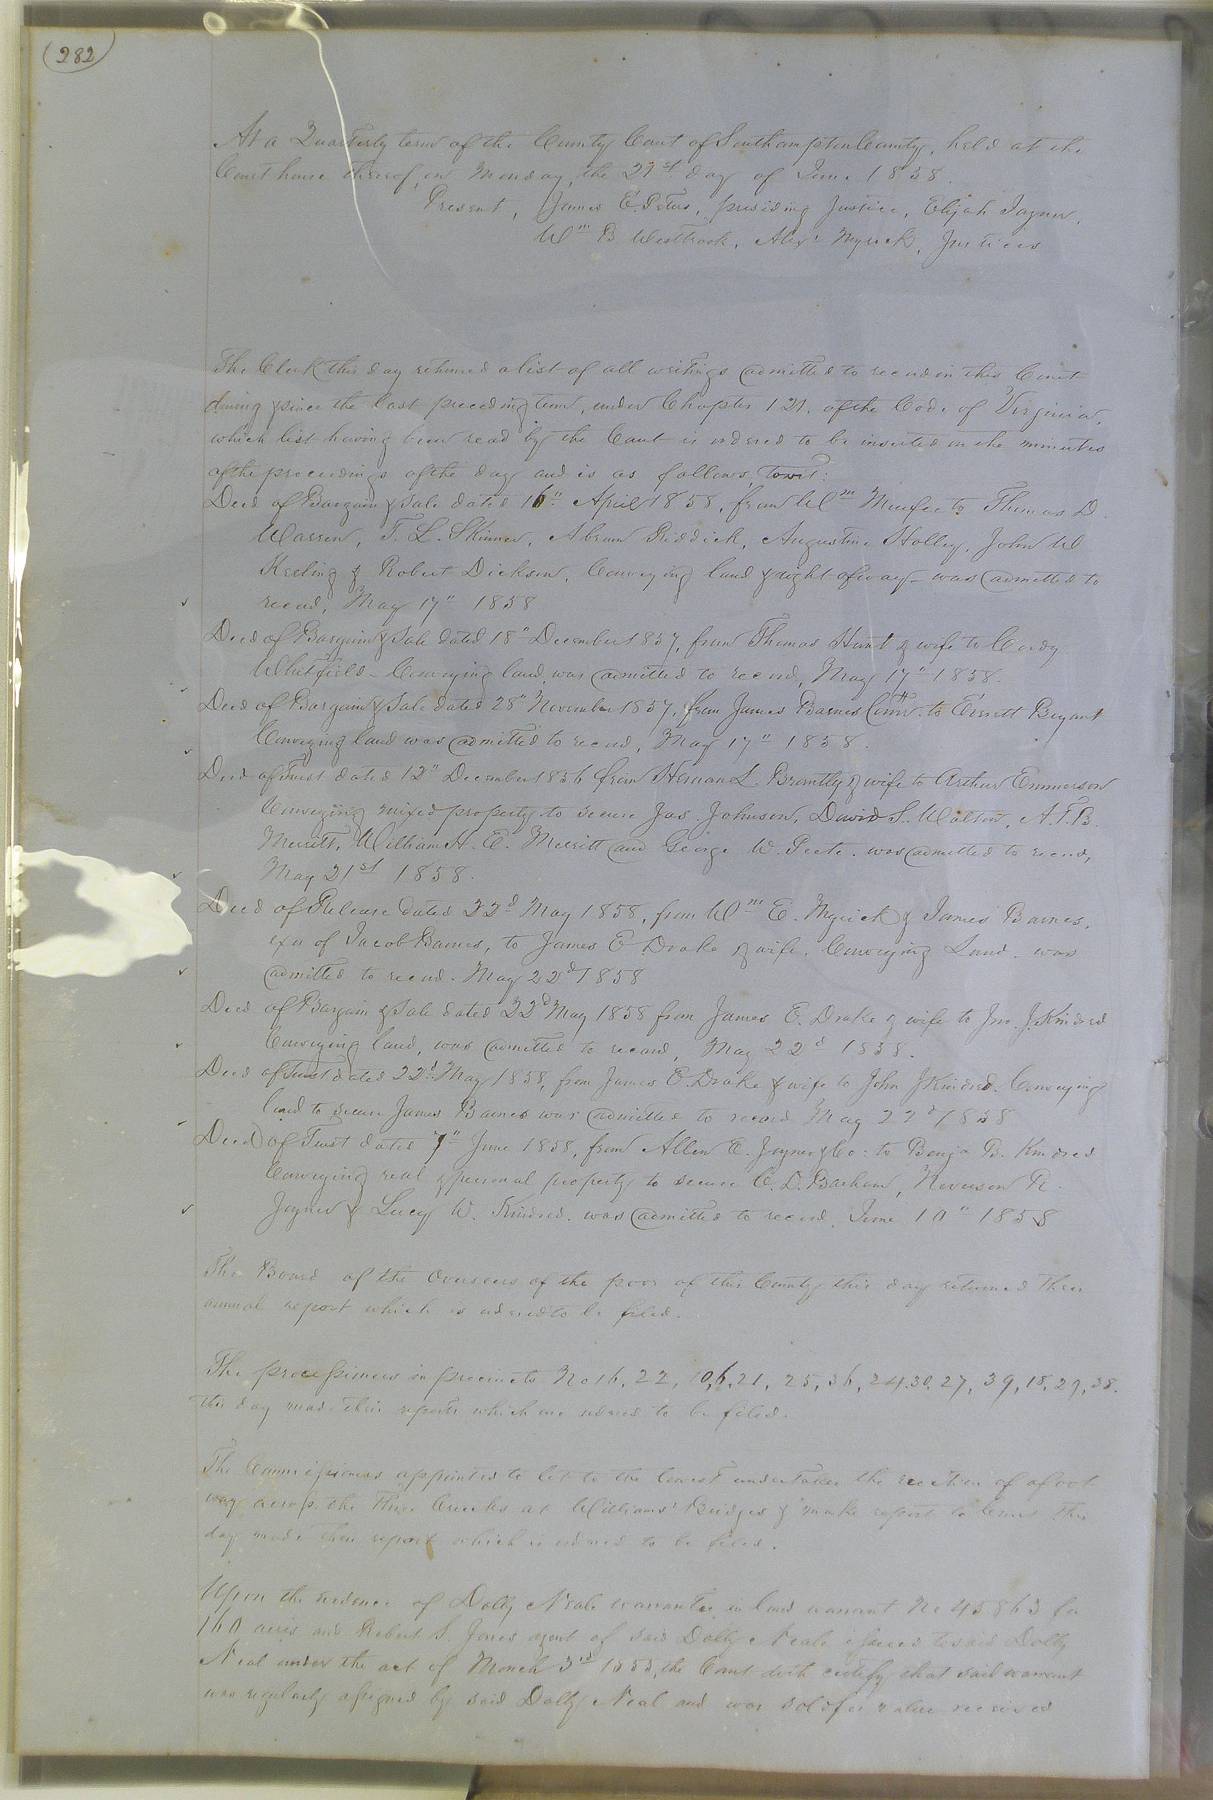 282
At a Quarterly term of the County Court of Southampton County, held at the
Court house thereof, on Monday, the 21st day of June 1858.
Present, James E. Peters, presiding Justice, Elijah Joyner,
Wm B Westbrook, Alexr Myrick, Justices
The Clerk this day returned a list of all writings admitted to record in this Court
during & since the last preceding term, under Chapter 121, of the Code of Virginia,
which list having been read by the Court is ordered to be inserted in the minutes
of the proceedings of the day and is as follows, towit:
Deed of Bargain & Sale dated 16" April 1858, from Wm to Thomas D.
Warren, T. L. Skinner, Abram Riddick, Augustine Holley, John W
Keeling & Robert Dickson, Conveying land & right of way - was admitted to
record, May 17" 1858
Deed of Bargain & Sale dated 18" December 1857, from Thomas Hunt & wife to Cordy
Whitfield - Conveying land, was admitted to record, May 17" 1858.
Deed of Bargain & Sale dated 28" November 1857, from James Barnes Comr. to Everett Bryant
Conveying land was admitted to record, May 17" 1858.
Deed of Trust dated 12" December 1856 from Herman L. Brantly & wife to Arthur Emmerson
Conveying mixed property to secure Jas. Johnson, David S. Walton, A.T.B.
Merritt, William H. E. Merritt and George W. Peete. was admitted to record,
May 21st 1858.
Deed of Release dated 22d May 1858, from Wm E. Myrick & James Barnes,
exr of Jacob Barnes, to James E Drake & wife. Conveying Land. was
admitted to record. May 22d 1858
Deed of Bargain & Sale dated 22d May 1858 from James E. Drake & wife to Jno. J. Kindred
Conveying land, was admitted to record, May 22d 1858.
Deed of Trust dated 22d May 1858, from James E. Drake & wife to John J Kindred. Conveying
land to secure James Barnes was admitted to record May 22d 1858
Deed of Trust dated 7" June 1858, from Allen E. Joyner & Co: to Benja B. Kindred
Conveying real & personal property to secure C. D. Barham, Neverson R.
Joyner & Lucy W. Kindred. was admitted to record, June 10" 1858
The Board of the Overseers of the poor of this County this day returned their
annual report which is ordered to be filed.
The processioners in precincts No 16, 22, 10, 6, 21, 25, 36, 24, 30, 27, 39, 18, 29, 38.
this day made their reports which are ordered to be filed.
The Commissioners appointed to let to the lowest undertaker the erection of a foot
way across the Three Creeks at Williams' Bridges & make report to Court this
day made their report which is ordered to be filed.
Upon the evidence of Dolly Neale warrantee in land warrant No 45863 for
160 acres and Robert S. Jones agent of said Dolly Neale issued to said Dolly
Neal under the act of March 3rd 1855, the Court doth certify that said warrant
was regularly assigned by said Dolly Neal and was sold for value received